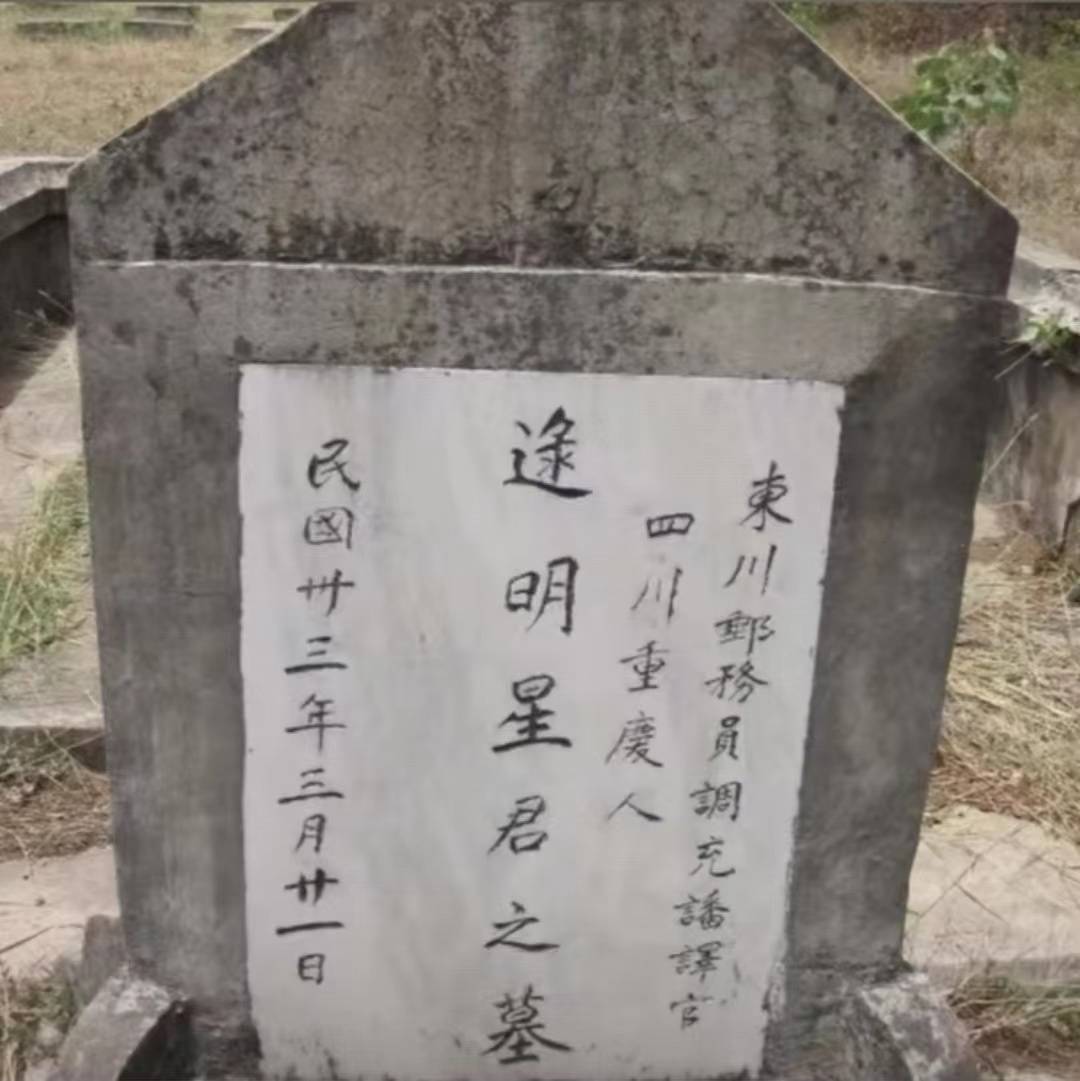 東川郵務員調充譒譯官
四川重慶人
逯明星君之墓
民國卅三年三月廿一日